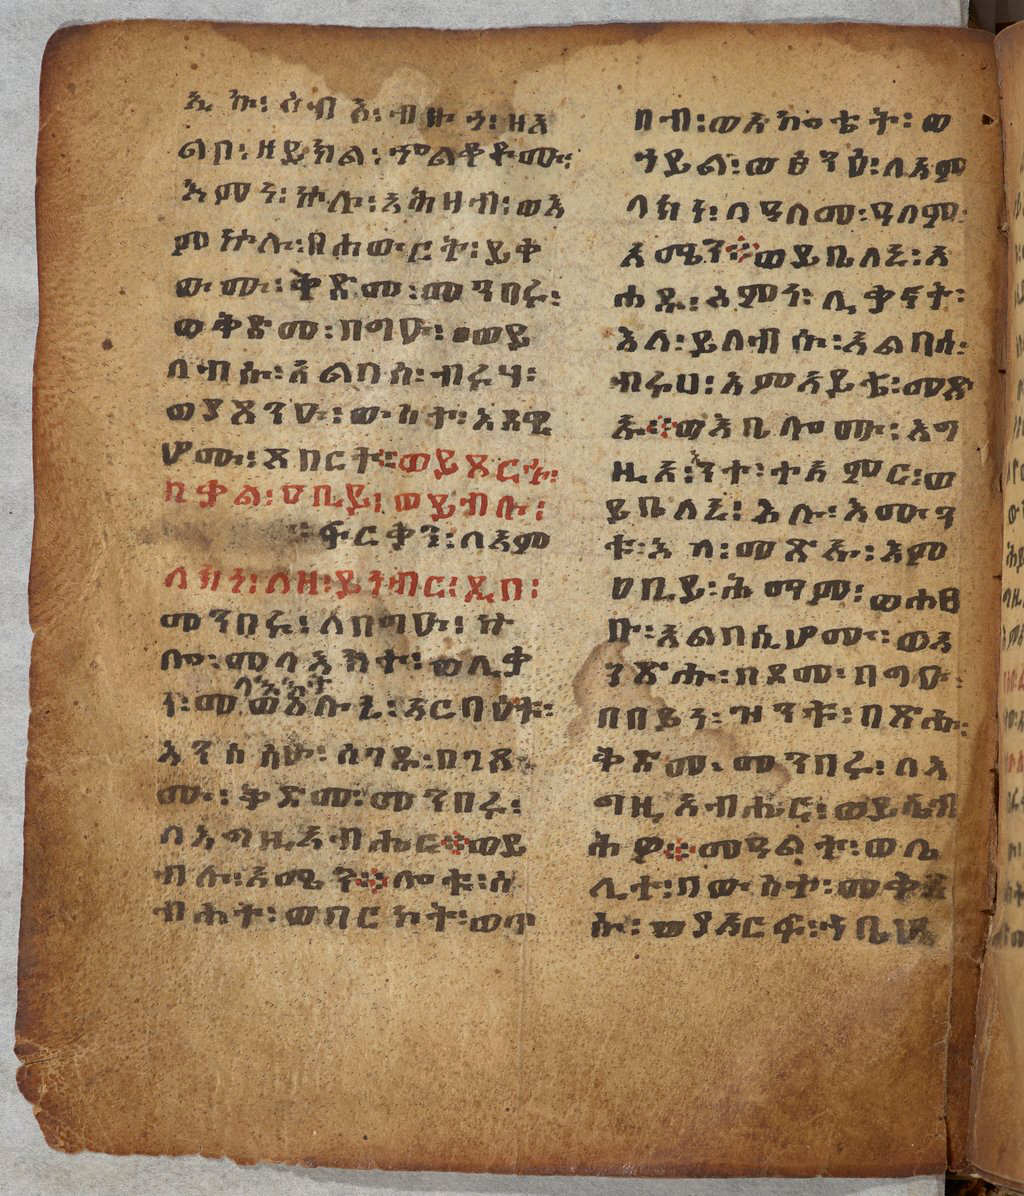 ኢኩ፡ ሰብአ፡ ብዙኀ፡ ዘአ
ልቦ፡ ዘይክል፡ ኆልቆቶሙ፡
እምነ፡ ኵሉ፡ አሕዛብ፡ ወእ
ም ኵሉ፡ በሐውርት፡ ይቀ
ውሙ፡ ቅድመ፡ መንበሩ፡
ወቅድመ፡ በግዑ፡ ወይ
ለብሱ፡ አልባሰ፡ ብሩሃ፡
ወያጸንዑ፡ ውስተ፡ እደዊ
ሆሙ፡ ጸበርተ፡ ወይጸርኁ፡
በቃል፡ ዐቢይ፡ ወይብሉ፡
ፍርቃን፡ ለአም
ላክነ፡ ለዘ፡ ይነብር፡ ዲበ፡
መንበሩ፡ ለበግዑ፡ ኵ
ሎ፡ መላእክተ፡ ወሊቃ
ላእክት
ነ፡ መ ወእሉ፡ ፬፡ አርባዕቱ፡
እንስሳሁ፡ ሰገዱ፡ በገጾ
ሙ፡ ቅድመ፡ መንበሩ፡
ለእግዚአብሔር፡ ወይ
ብሉ፡ አሜን፡ ሎቱ፡ ስ
ብሐት፡ ወበርከት፡ ወጥ
በብ፡ ወአኰቴት፡ ወ
ኀይል፡ ወፅንዕ፡ ለአም
ላክነ፡ ለዓለመ፡ ዓለም፡
አሜን። ወይቤለኒ፡ አ
ሐዱ፡ እምነ፡ ሊቃናት፡
እለ፡ ይለብሱ፡ አልባሰ፡
ብሩህ፡ እምአይቴ፡ መጽ
ኡ። ወእቤሎሙ፡ እግ
ዚእ፡ ንተ፡ ተአምር፡ ወ
ይቤለኒ፡ እሉ፡ እሙን
ቱ፡ እለ፡ መጽኡ፡ እም
ዐቢይ፡ ሕማም፡ ወሐፀ
ቡ፡ አልባሲሆሙ፡ ወአ
ንጽሑ፡ በደመ፡ በግዑ፡
በበይነ፡ ዝንቱ፡ በጽሑ፡
ቅድመ፡ መንበሩ፡ ለእ
ግዚአብሔር፡ ወይሴብ
ሕዎ። መዓልተ፡ ወሌ
ሊተ፡ በውስተ፡ መቅደ
ሱ፡ ወያዐርፍ፡ ኀቤሁ